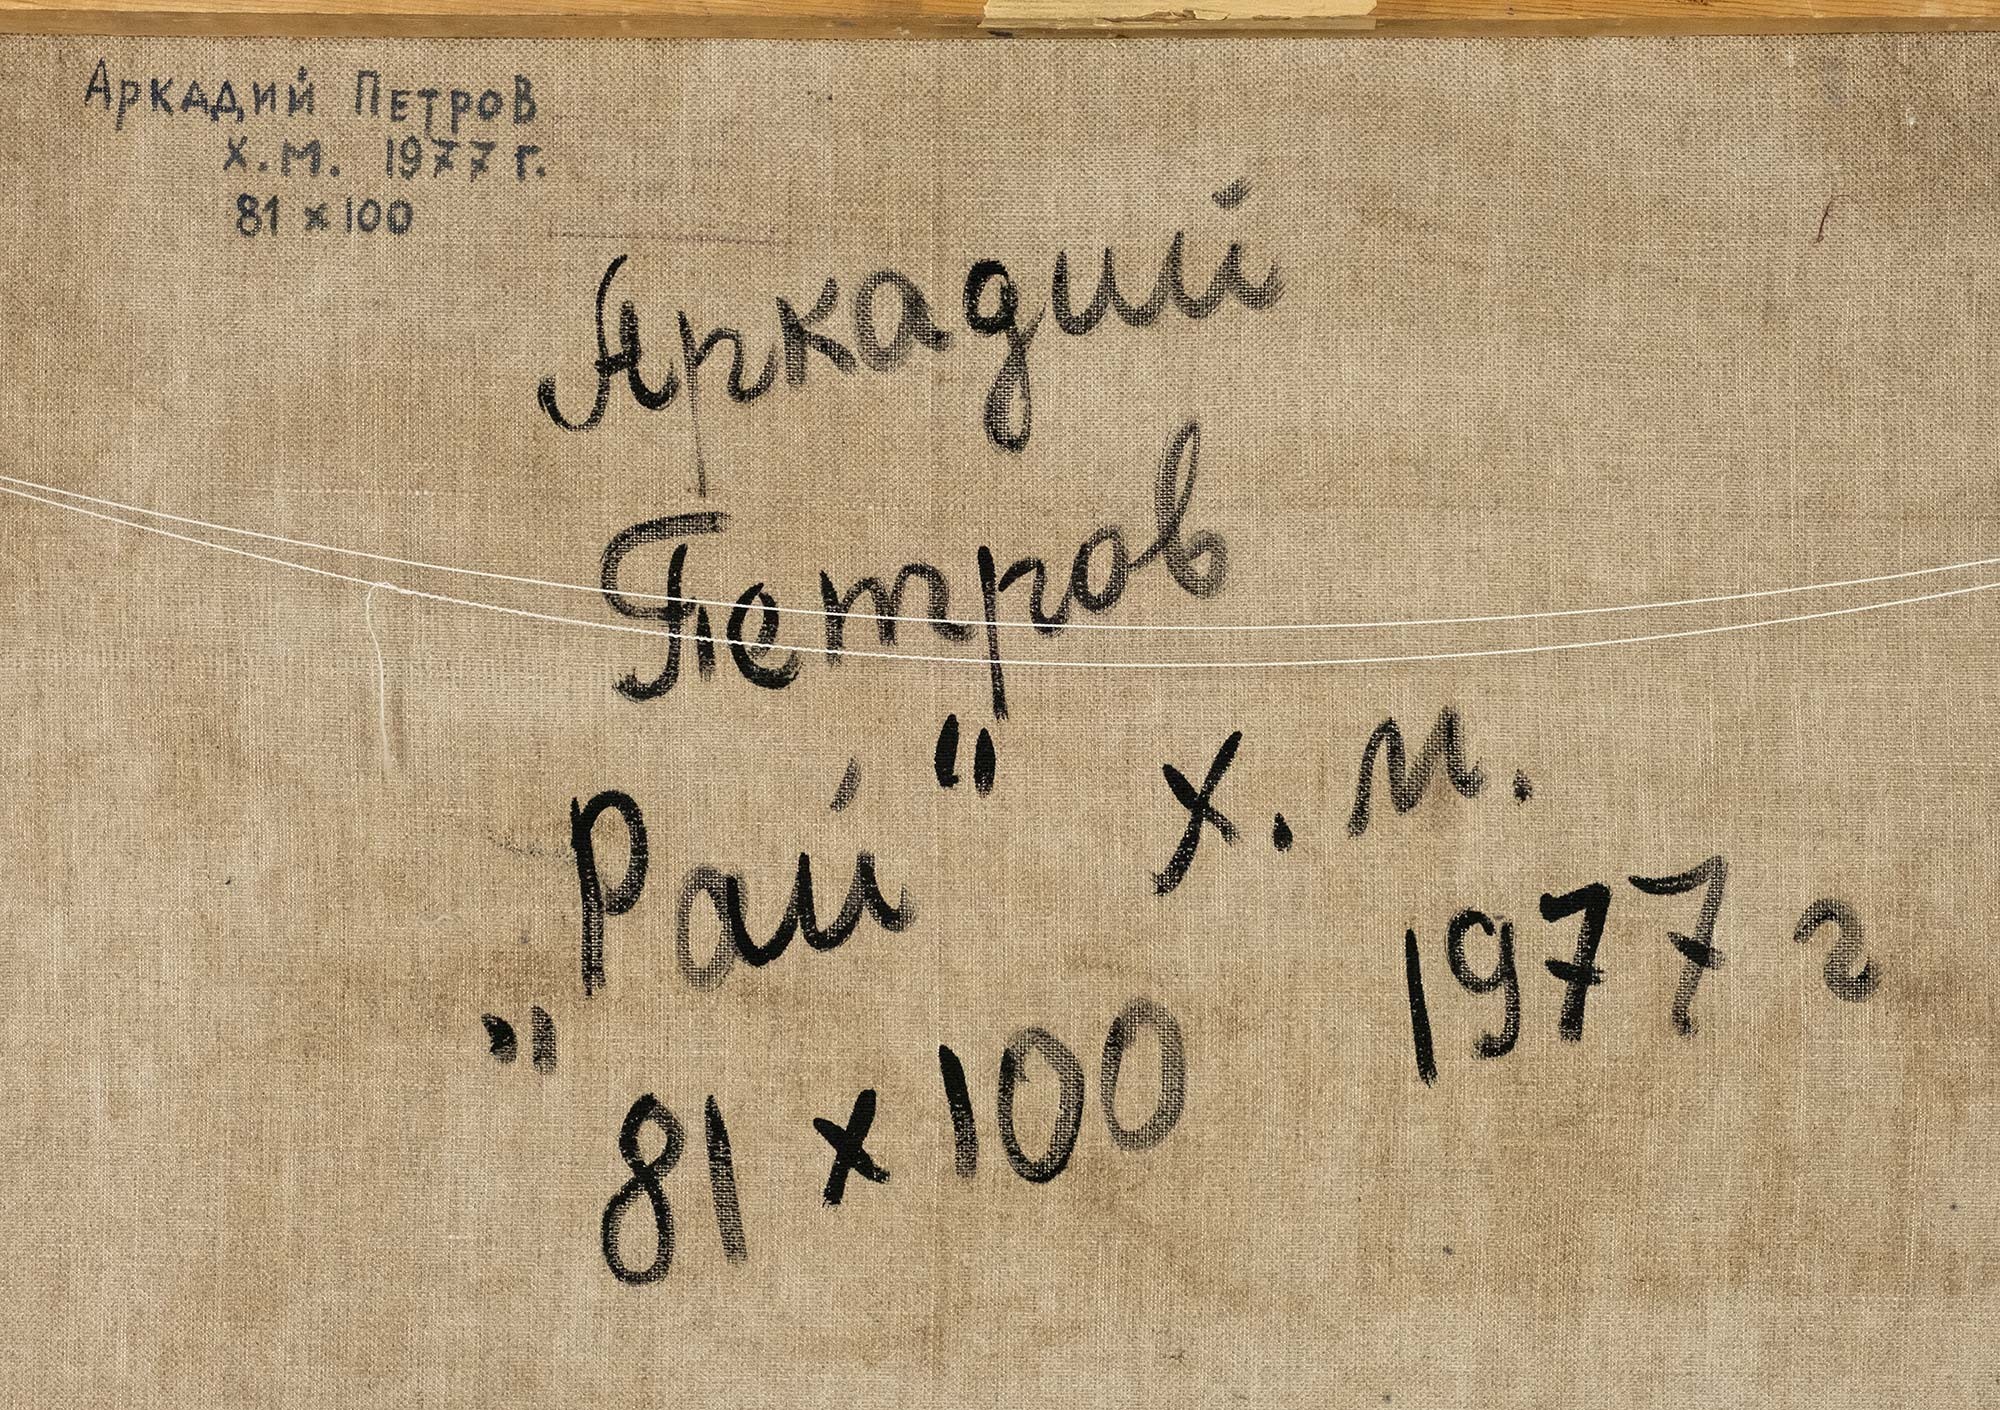 Аркадий Петров
Х.М. 1977 г.
81 x 100
Аркадий
Петров
„Рай" х.м.
1977 г
81 x 100